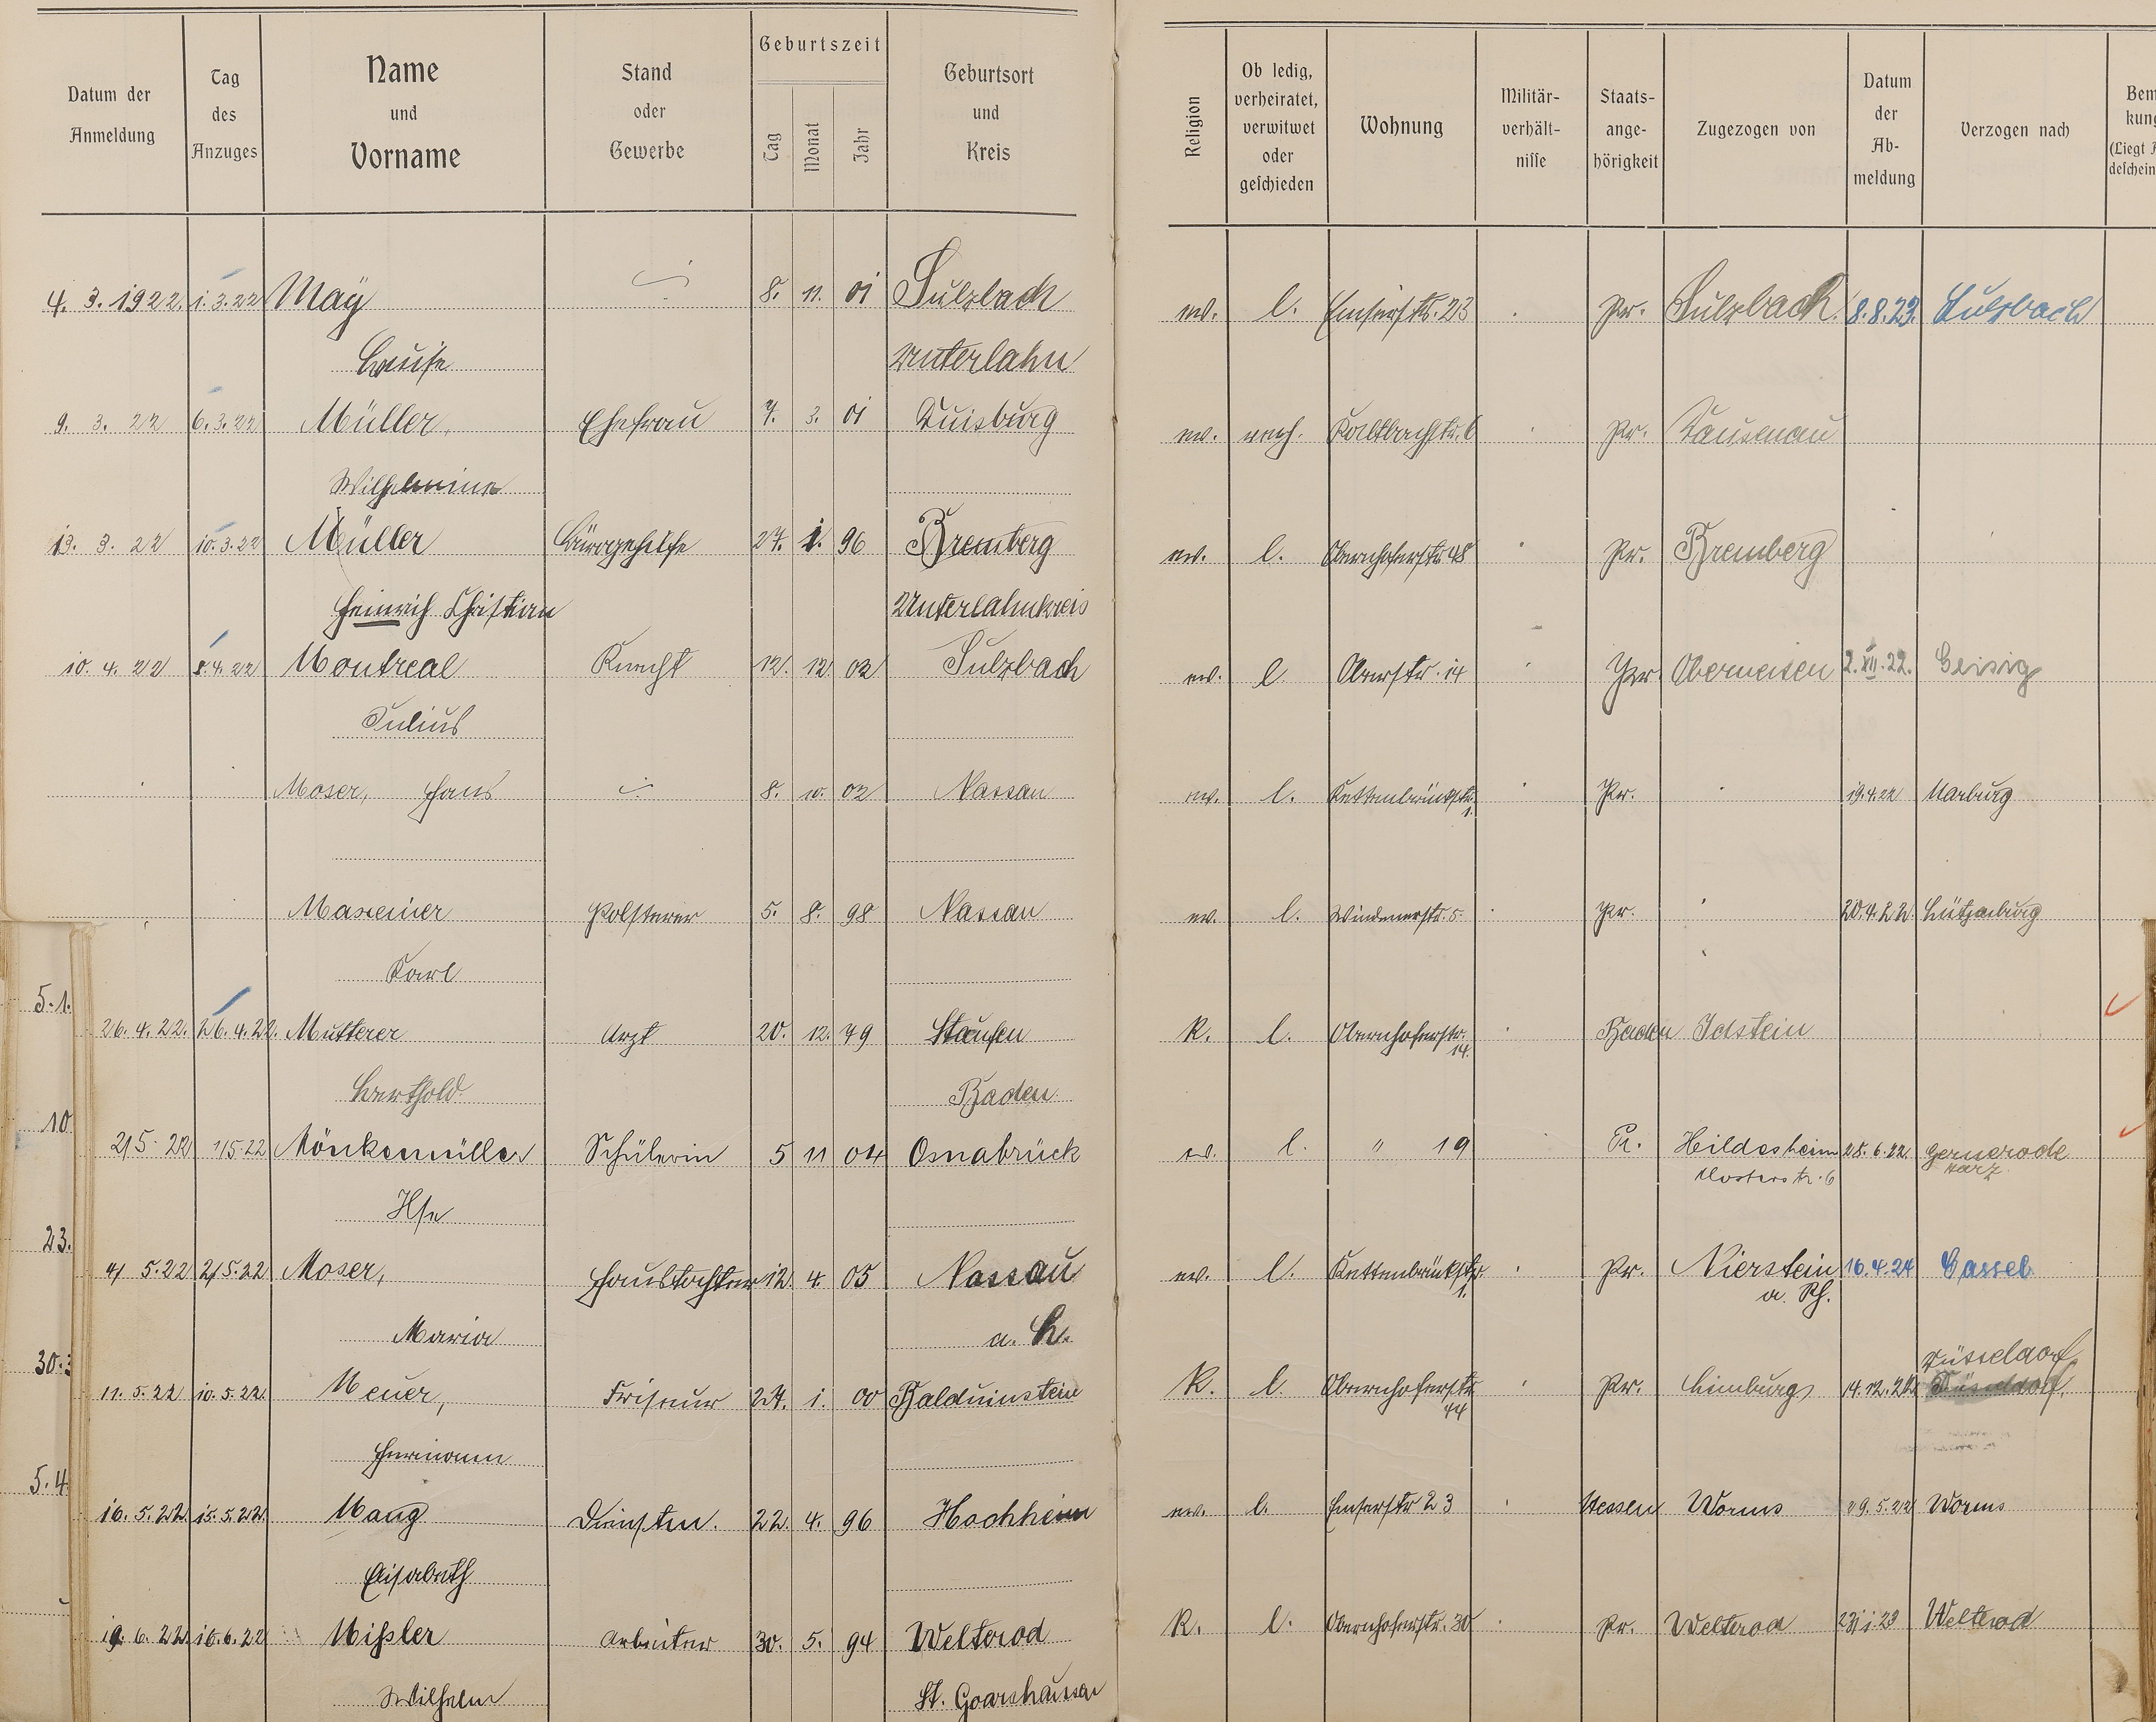 Datum der Anmeldung | Tag des Anzuges | Name und Vorname | Stand oder Gewerbe | Geburtszeit Tag Monat Jahr | Geburtsort und Kreis | Religion | Ob ledig, verheiratet, verwitwet oder geschieden | Wohnung | Militär-verhält-nisse | Staats-ange-hörigkeit | Zugezogen von | Datum der Ab-meldung | Verzogen nach
4. 3. 1922. 1.3.22 Maÿ 8. 11. 01 Sulzbach ev. l. Emserstr. 23 Pr. Sulzbach 8.8.23. Sulzbach
Louise Unterlahn
9. 3. 22 6.3.22 Müller, Ehefrau 7. 3. 01 Duisburg ev. verh. Kaltbachstr. 6 Pr. Dausenau
Wilhelmine
13. 3. 22 10.3.22 Müller Bürogehilfe 27. 1. 96 Bremberg ev. l. Obernhoferstr. 48 Pr. Bremberg
Heinrich Christian Unterlahnkreis
10. 4. 22 8.4.22 Montreal Knecht 12. 12. 02 Sulzbach ev. l. Oberstr. 14 Pr. Oberneisen 2.XII.22. Geisig
Julius
Moser, Hans 8. 10. 02 Nassau ev. l. Kettenbrückstr. 1. Pr. 19.4.22 Marburg
Maxeiner Polsterer 5. 8. 98 Nassau ev. l. Windenerstr. 5. Pr. 20.4.22.
Karl
5.1.
26. 4. 22. 26.4.22. Mutterer Arzt 20. 12. 79 Staufen K. l. Obernhoferstr. 14. Baden Idstein
Berthold Baden
10
2/5. 22 1/5.22 Mönkemüller Schülerin 5 11 04 Osnabrück ev. l. " 19 Pr. Hildesheim 28.6.22. Gernrode
Klosterstr. 6 Harz
Ilse
23.
4/ 5.22 2/5.22 Moser, Haustochter 12. 4. 05 Nassau ev. l. Kettenbrückstr. 1. Pr. Nierstein 16.4.24 Cassel
a. Rh.
Maria a. L.
30.3
Düsseldorf
11. 5. 22 10.5.22. Meuer, Friseur 27. 1. 00 Balduinstein K. l. Obernhoferstr. 44 Pr. Limburg Düsseldorf
Hermann
5.4
16. 5. 22. 15.5.22. Mang Dienstm. 22. 4. 96 Hochheim ev. l. Emserstr 23 Hessen Worms 29.5.22 Worms
Elisabeth
19. 6. 22. 16.6.22 Mißler Arbeiter 30. 5. 94 Welterod K. l. Obernhoferstr. 30 Pr. Welterod Welterod
Wilhelm St. Goarshausen